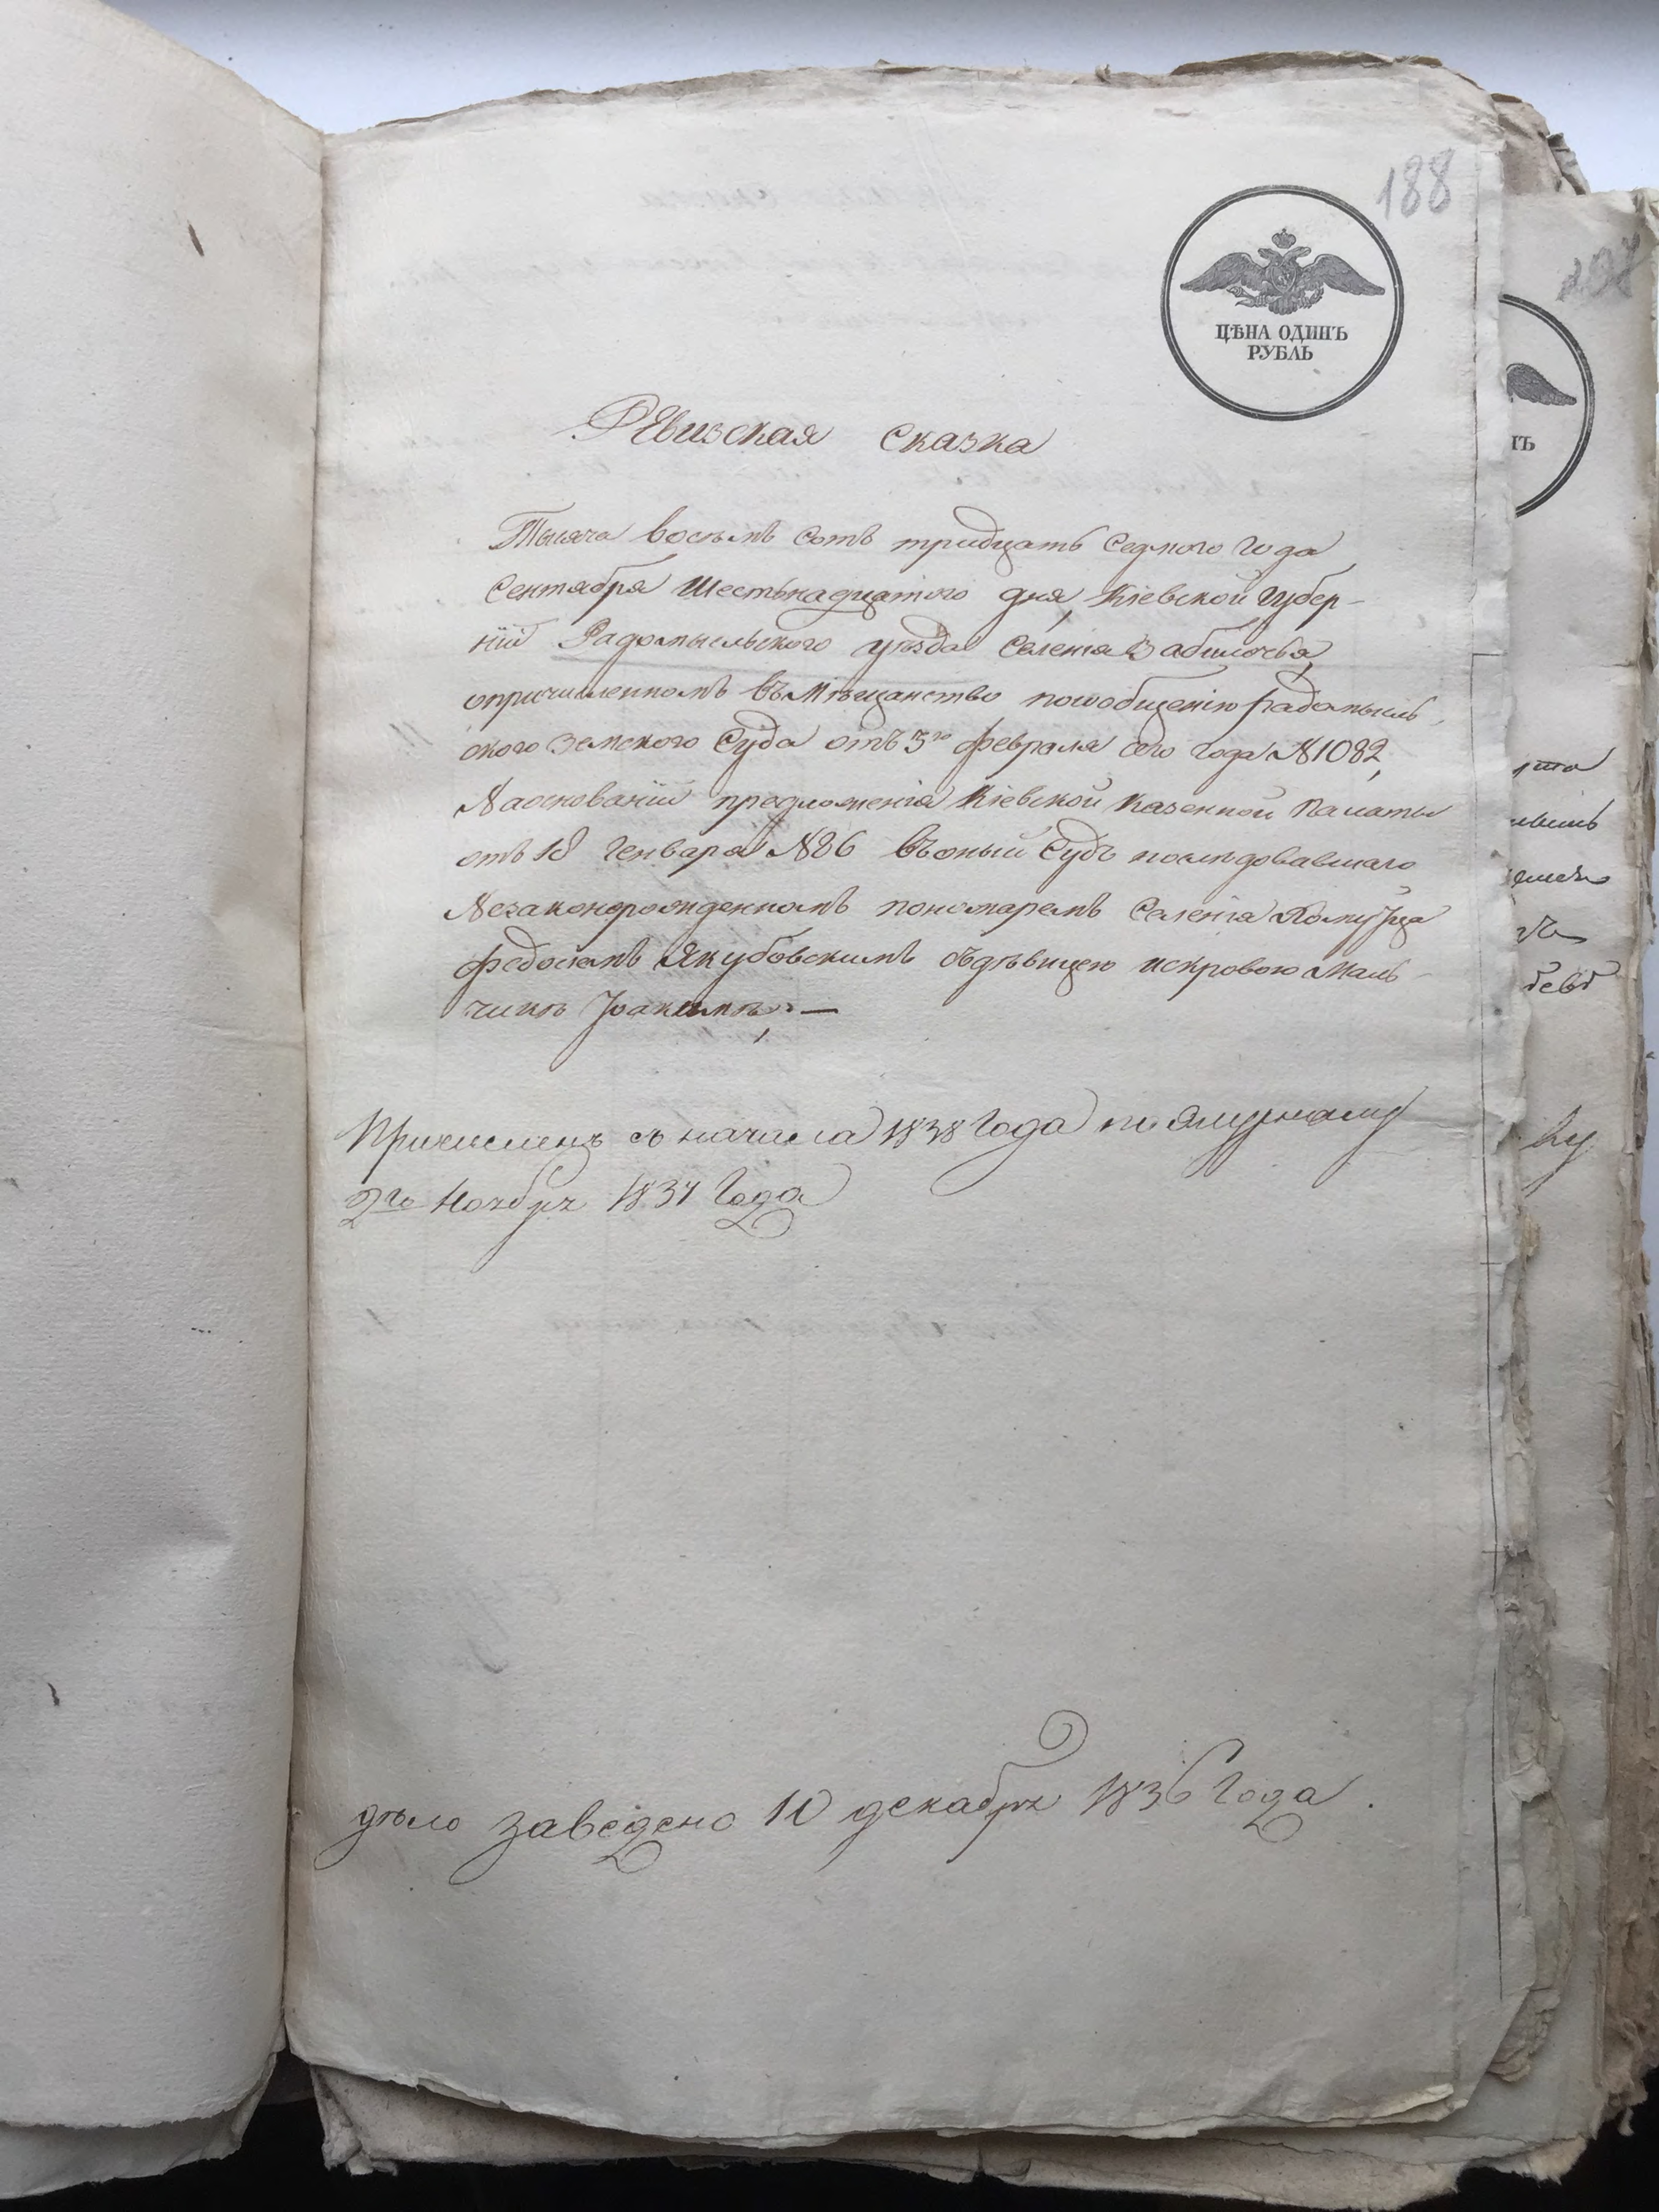 188
ЦѢНА ОДИНЪ
РУБЛЬ
Ревизская сказка
Тысяча восемь сотъ тридцать седмого года
Сентября шестьнадцатого дня, Кіевской Губер-
ніи Радомысльского уѣзда Селенія Забилочья,
опричисленномъ въ мѣщанство посообщенію радомысль
ского Земского Суда отъ 3го февраля сего года №1082,
Наоснованіи предложенія Кіевской Казенной Палаты
отъ 18 Генваря №86 въоный Судъ послѣдовавшаго
Незаконорожденномъ пономаремъ Селенія
федосіемъ Якубовскимъ съдѣвицею искровою маль-
чикѣ Іоакимѣ, —
Причисленъ съ начала 1838 Года по
2го Ноября 1837 Года
дѣло заведено 10 декабря 1836 Года.
ву